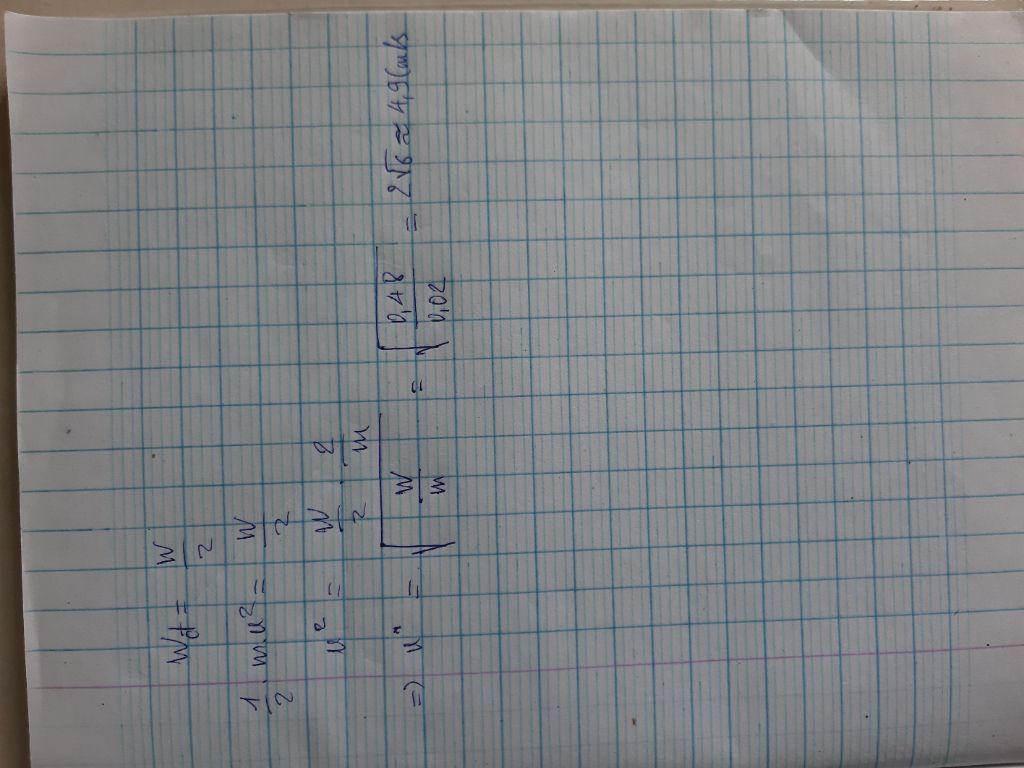 Wđ = W/2
1/2 mv² = W/2
v² = W/2 · 2/m
=> v = √(W/m) = √(0,48/0,02) = 2√6 ≈ 4,9 (m/s